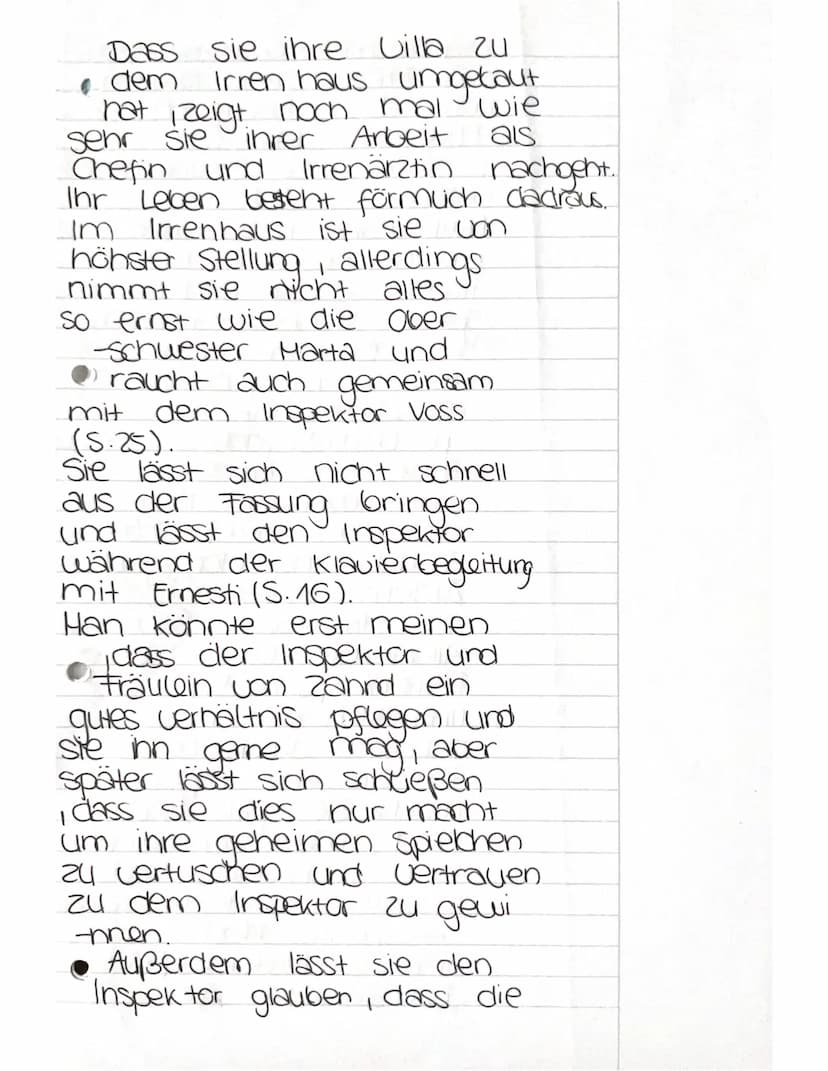 Dass sie ihre Villa zu
dem Irren haus umgebaut
hat , zeigt noch mal wie
sehr sie ihrer Arbeit als
Chefin und Irrenärztin nachgeht.
Ihr Leben besteht förmlich dadraus.
Im Irrenhaus ist sie von
höhster Stellung , allerdings
nimmt sie nicht alles
so ernst wie die Ober
-schwester Marta und
raucht auch gemeinsam
mit dem Inspektor Voss
(S.25).
Sie lässt sich nicht schnell
aus der Fassung bringen
und lässt den Inspektor
während der Klavierbegleitung
mit Ernesti (S.16).
Man könnte erst meinen
, dass der Inspektor und
Fräulein von Zahnd ein
gutes Verhältnis pflegen und
sie ihn gerne mag , aber
später lässt sich schließen
, dass sie dies nur macht
um ihre geheimen Spielchen
zu vertuschen und Vertrauen
zu dem Inspektor zu gewi
-nnen.
Außerdem lässt sie den
Inspektor glauben , dass die